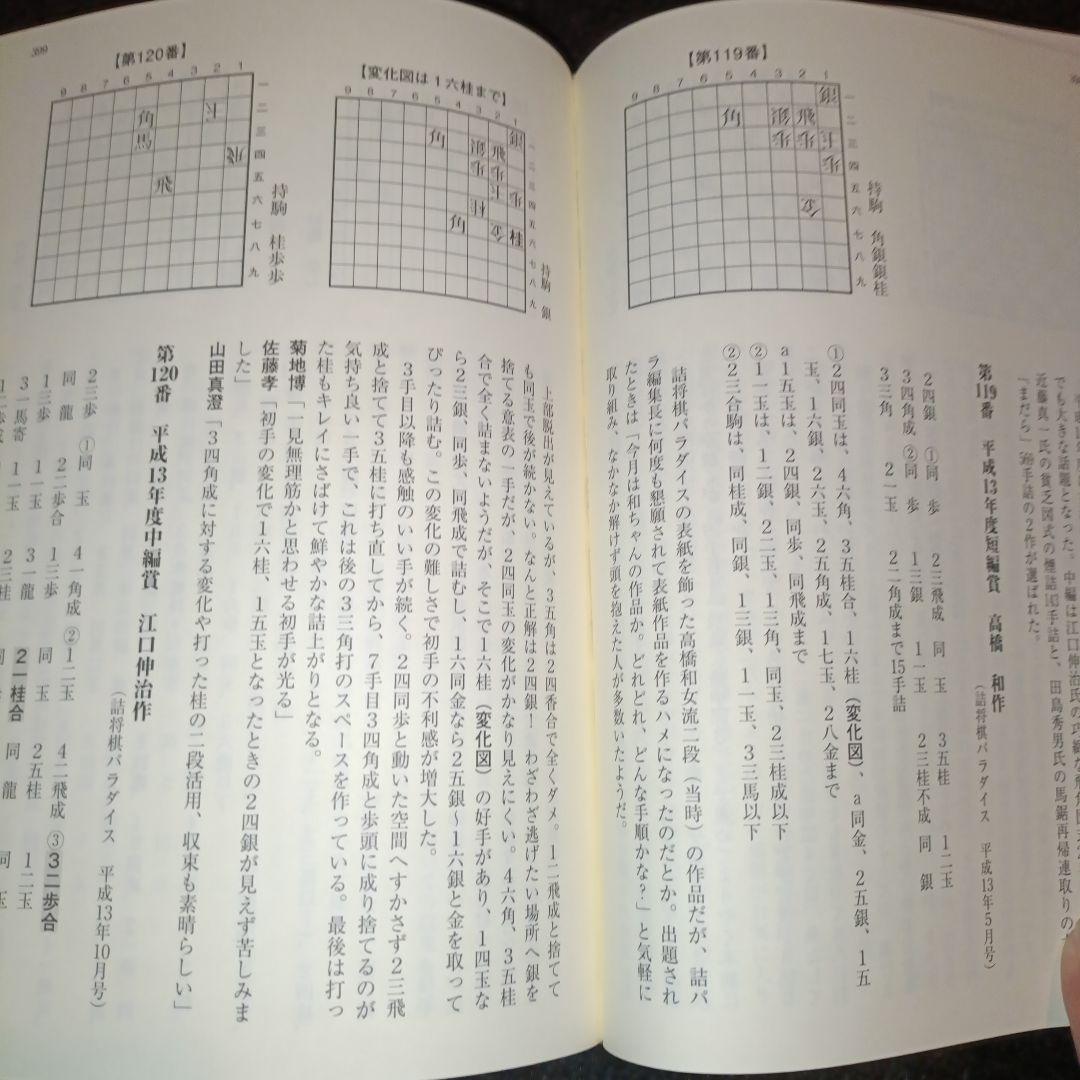 でも大きな話題となった。
「まだら」
手詰の2作が選ばれた。
第119番 平成13年度短編賞 高橋 和作
（詰将棋パラダイス 平成13年5月号）
【第119番】
9 8 7 6 5 4 3 2 1
一 二 三 四 五 六 七 八 九
持駒 角銀銀桂
2四銀 ①同 歩 2三飛成 同 玉 3五桂 1二玉
3四角成 ②同 歩 1三銀 1一玉 2三桂不成 同 銀
3三角 2一玉 2一角成まで15手詰
①2四同玉は、4六角、3五桂合、1六桂（変化図）、a同金、2五銀、1五
玉、1六銀、2六玉、2五角成、1七玉、2八金まで
a1五玉は、2四銀、同歩、同飛成まで
②1一玉は、1二銀、2二玉、1三角、同玉、2三桂成以下
②2三合駒は、同桂成、同銀、1三銀、1一玉、3三馬以下
詰将棋パラダイスの表紙を飾った高橋和女流二段（当時）の作品だが、詰パ
ラ編集長に何度も懇願されて表紙作品を作るハメになったのだとか。出題され
たときは「今月は和ちゃんの作品か。どれどれ、どんな手順かな？」と気軽に
取り組み、なかなか解けず頭を抱えた人が多数いたようだ。
【変化図は1六桂まで】
9 8 7 6 5 4 3 2 1
一 二 三 四 五 六 七 八 九
持駒 銀
上部脱出が見えているが、3五角は2四香合で全くダメ。1二飛成と捨てて
も同玉で後が続かない。なんと正解は2四銀！ わざわざ逃げたい場所へ銀を
捨てる意表の一手だが、2四同玉の変化がかなり見えにくい。4六角、3五桂
合で全く詰まないようだが、そこで1六桂（変化図）の好手があり、1四玉な
ら2三銀、同歩、同飛成で詰むし、1六同金なら2五銀～1六銀と金を取って
ぴったり詰む。この変化の難しさで初手の不利感が増大した。
3手目以降も感触のいい手が続く。2四同歩と動いた空間へすかさず2三飛
成と捨てて3五桂に打ち直してから、7手目3四角成と歩頭に成り捨てるのが
気持ち良い一手で、これは後の3三角打のスペースを作っている。最後は打っ
た桂もキレイにさばけて鮮やかな詰上がりとなる。
菊地博「一見無理筋かと思わせる初手が光る」
佐藤孝「初手の変化で1六桂、1五玉となったときの2四銀が見えず苦しみま
した」
山田真澄「3四角成に対する変化や打った桂の二段活用、収束も素晴らしい」
399
【第120番】
9 8 7 6 5 4 3 2 1
一 二 三 四 五 六 七 八 九
持駒 桂歩歩
第120番 平成13年度中編賞 江口伸治作
（詰将棋パラダイス 平成13年10月号）
2三歩 ①同 玉 4一角成 ②1二玉 4二飛成 ③3二歩合
同 龍 2二歩合 1三歩 同 玉 2五桂 1二玉
1三歩 1一玉 3一龍 2一桂合 同 龍
3一馬寄 1一玉 2三桂